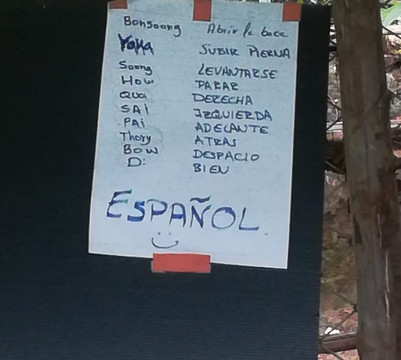 Bonsoong Abrir la boca
Yoka SUBIR PIERNA
Soong LEVANTARSE
How PARAR
Qua DERECHA
SAI IZQUIERDA
PAI ADELANTE
Thoy ATRAS
BOW DESPACIO
D: BIEN
ESPAÑOL.